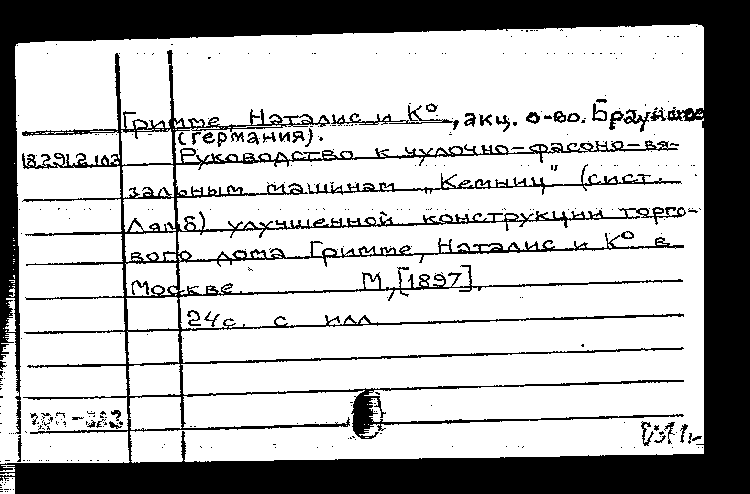 Гримме, Наталис и К⁰, акц. о-во.
(Германия).
18.291.2.103 Руководство к чулочно-фасоно-вя-
зальным машинам „Кемниц" (сист.
Лямб) улучшенной конструкции торго-
вого дома Гримме, Наталис и К⁰ в
Москве. М., [1897].
24с. с илл.